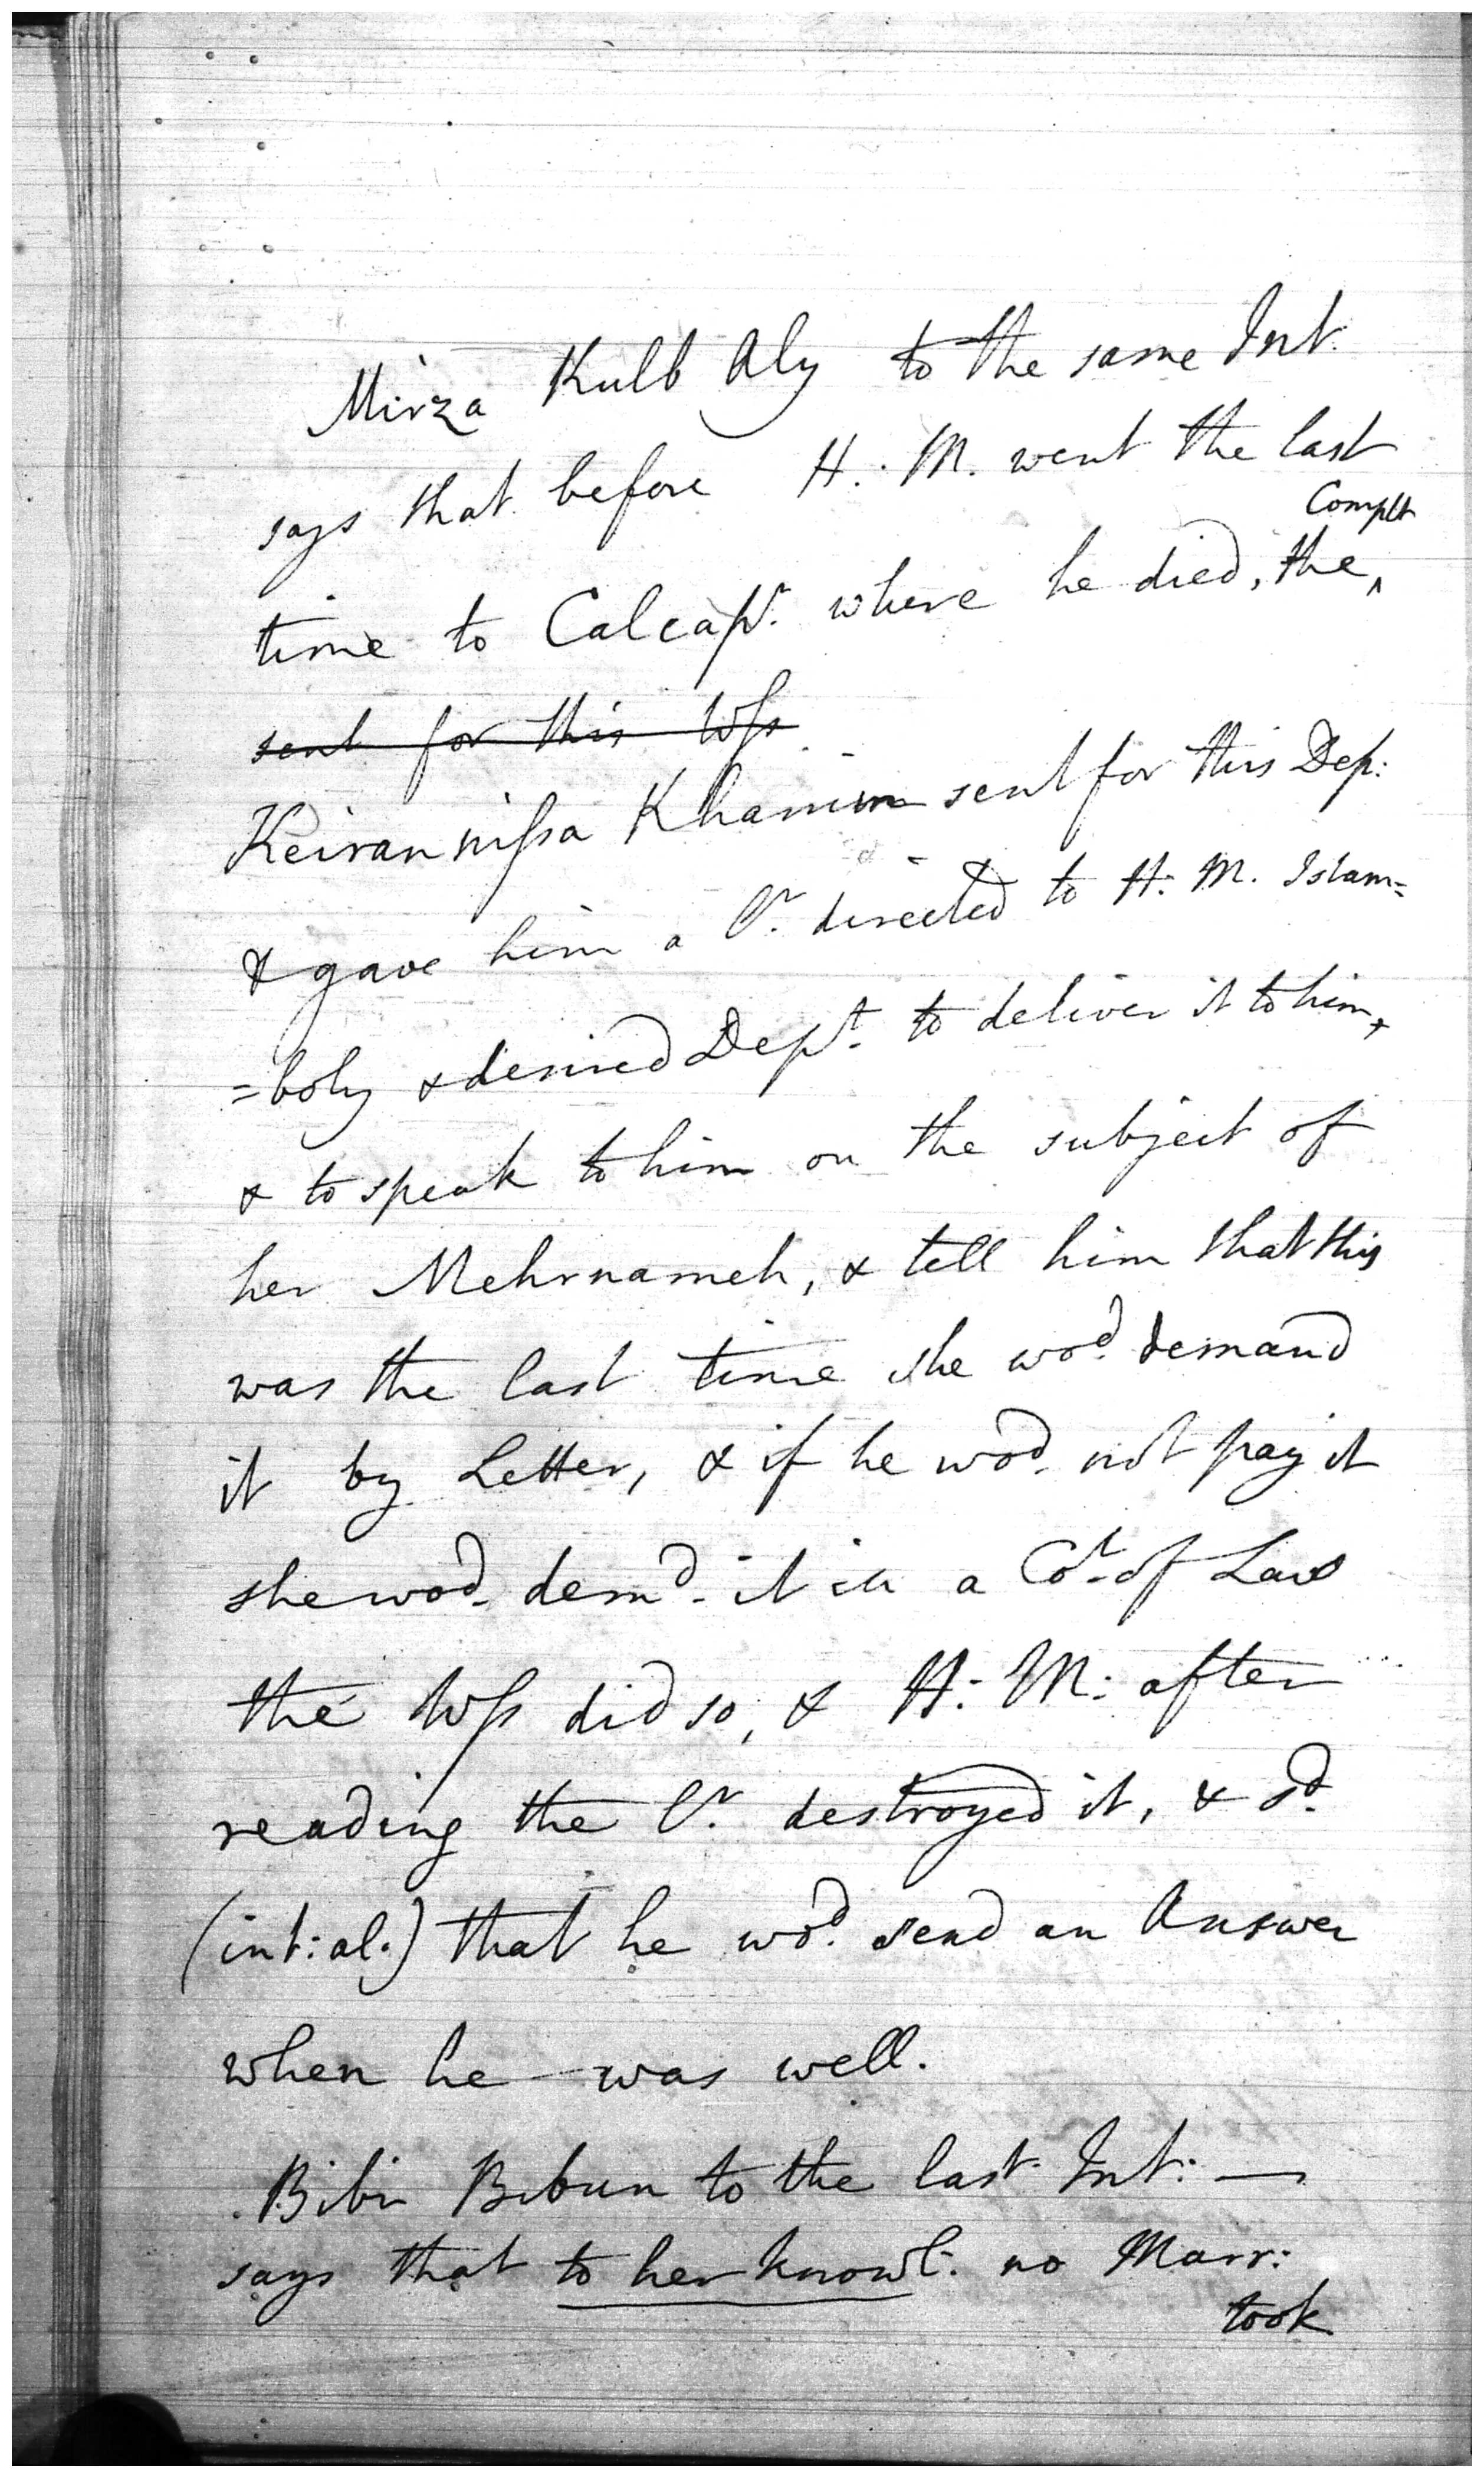 Mirza Kulb Aly to the same Int.
says that before H. M. went the last
time to Calcap.r where he died, the Complt
sent for this Wss
Keiran nissa Khanim sent for this Dep:
& gave him a l.r directed to H: M. Islam=
=boly & desired Dep.t to deliver it to him,
& to speak to him on the subject of
her Mehrnameh, & tell him that this
was the last time she wod. demand
it by Letter, & if he wod. not pay it
she wod. demd. it in a Cot. of Law
the Wss did so, & H: M: after
reading the l.r destroyed it, & sd.
(int: al.) that he wod. send an Answer
when he was well.
Bibi Bibun to the last Int: —
says that to her knowl: no Marr:
took